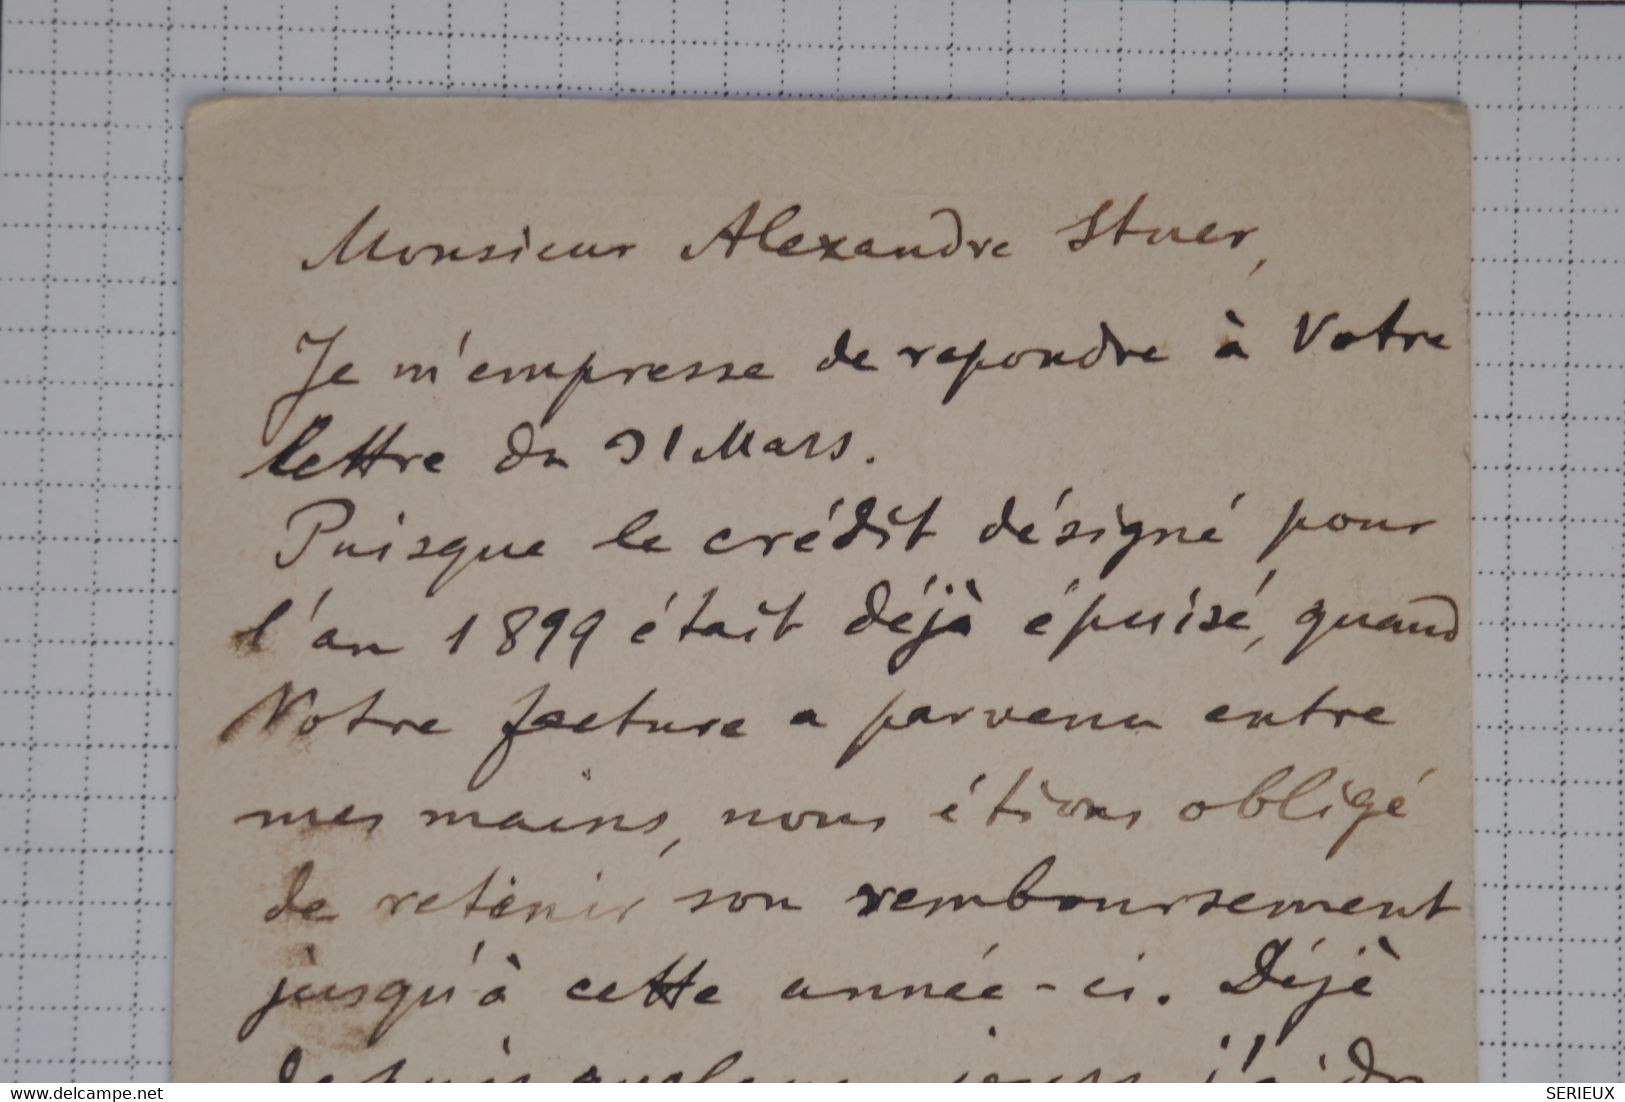 Monsieur Alexandre Stuer,
Je m'empresse de repondre à Votre
lettre du 31 Mars.
Puisque le crédit désigné pour
l'an 1899 était déjà épuisé, quand
Votre facture a parvenu entre
mes mains, nous étions obligé
de retenir son remboursement
jusqu'à cette année-ci. Déjà
depuis quelques jours j'ai
www.delcampe.net
SERIEUX